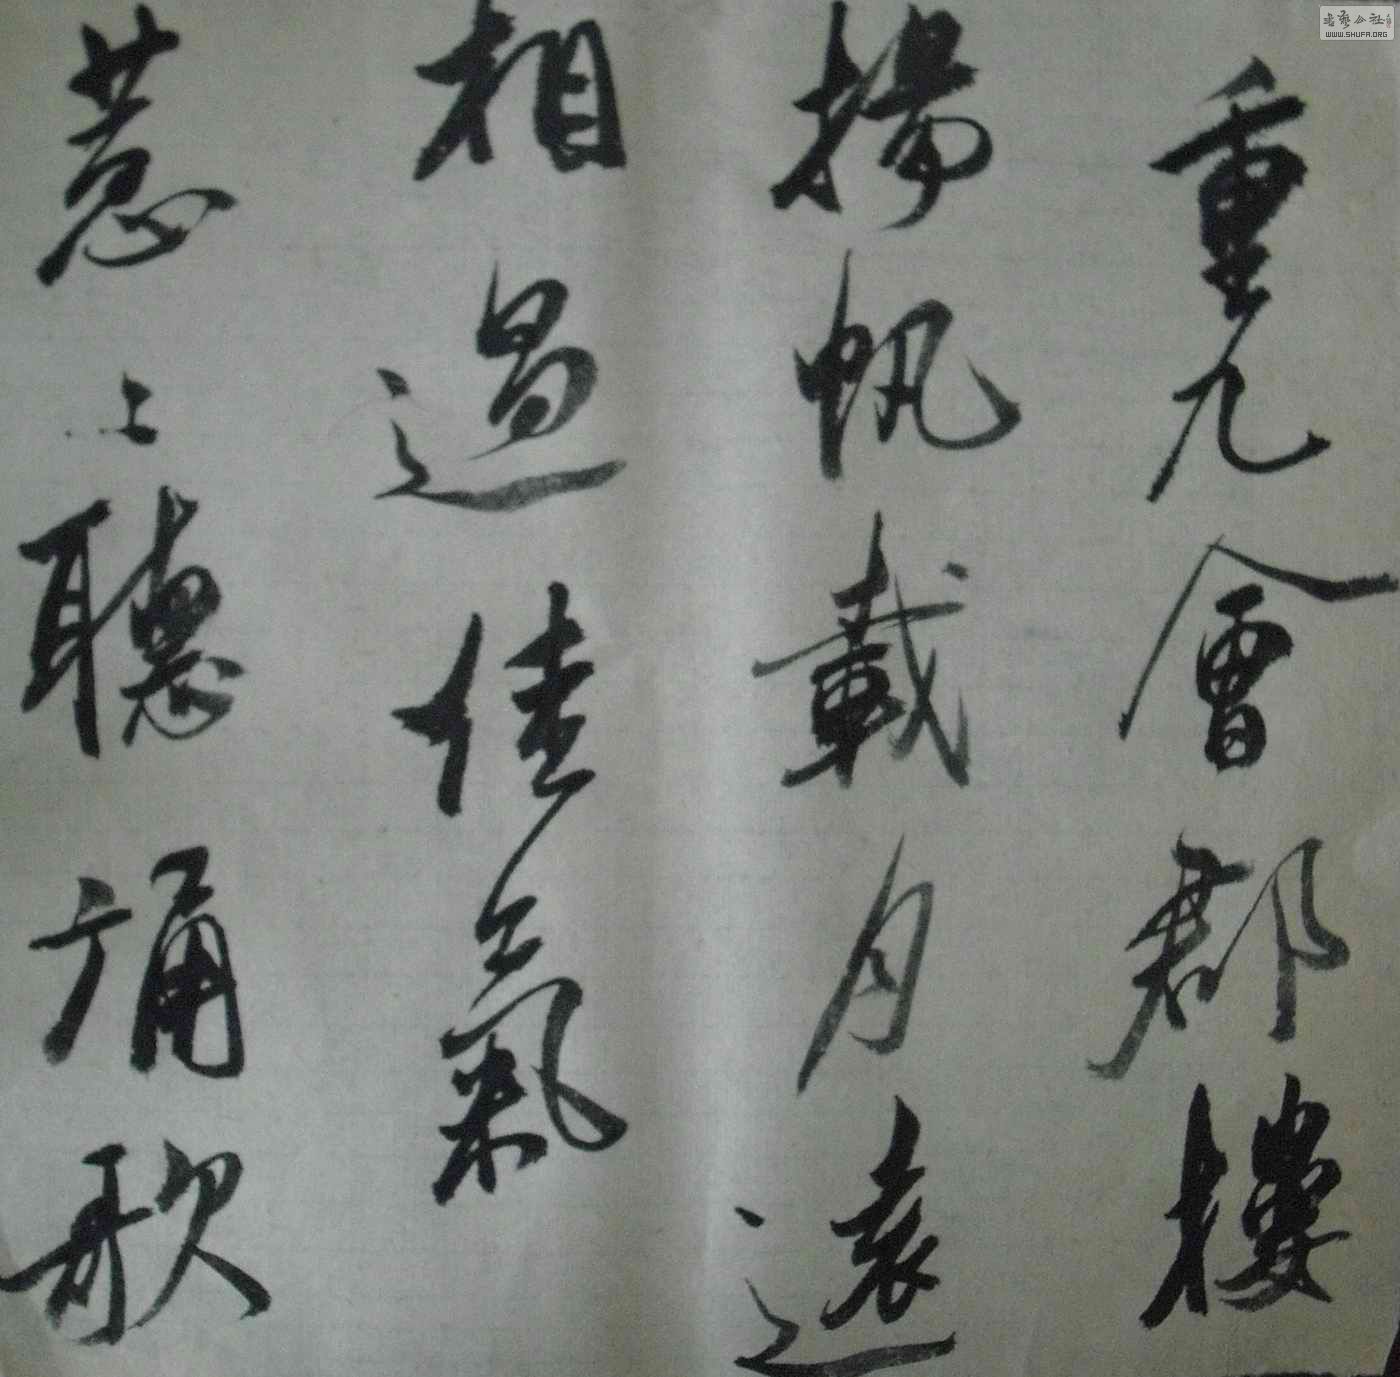 重九會郡樓
揚帆載月遠
相過佳氣
葱上聽誦歌
书艺公社
WWW.SHUFA.ORG